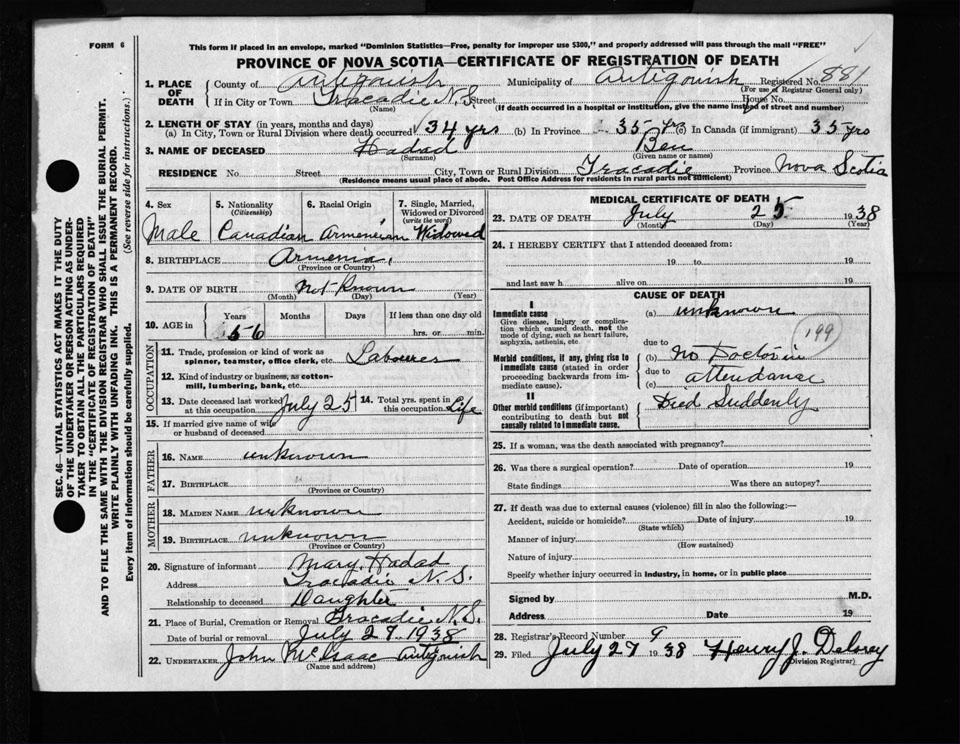 FORM 6
This form if placed in an envelope, marked "Dominion Statistics—Free, penalty for improper use $300," and properly addressed will pass through the mail "FREE"
PROVINCE OF NOVA SCOTIA—CERTIFICATE OF REGISTRATION OF DEATH
1. PLACE OF DEATH County of Antigonish Municipality of Antigonish Registered No. 881
(For use of Registrar General only)
If in City or Town Tracadie N.S. Street House No.
(Name) (If death occurred in a hospital or institution, give the name instead of street and number)
2. LENGTH OF STAY (in years, months and days)
(a) In City, Town or Rural Division where death occurred 34 yrs (b) In Province 35 yrs (c) In Canada (if immigrant) 35 yrs
3. NAME OF DECEASED Hadad Ben
(Surname) (Given name or names)
RESIDENCE No. Street City, Town or Rural Division Tracadie Province Nova Scotia
(Residence means usual place of abode. Post Office Address for residents in rural parts not sufficient)
4. Sex 5. Nationality (Citizenship) 6. Racial Origin 7. Single, Married, Widowed or Divorced (write the word)
Male Canadian Armeneian Widowed
8. BIRTHPLACE Armenia
(Province or Country)
9. DATE OF BIRTH Not Known
(Month) (Day) (Year)
10. AGE in Years Months Days If less than one day old
56 hrs. or min.
OCCUPATION
11. Trade, profession or kind of work as spinner, teamster, office clerk, etc. Labourer
12. Kind of industry or business, as cotton-mill, lumbering, bank, etc.
13. Date deceased last worked at this occupation July 25 14. Total yrs. spent in this occupation Life
15. If married give name of wife or husband of deceased
FATHER
16. NAME unknown
17. BIRTHPLACE
(Province or Country)
MOTHER
18. MAIDEN NAME unknown
19. BIRTHPLACE unknown
(Province or Country)
20. Signature of informant Mary Hadad
Address Tracadie N.S.
Relationship to deceased Daughter
21. Place of Burial, Cremation or Removal Tracadie N.S.
Date of burial or removal July 27 1938
22. UNDERTAKER John McIsaac Antigonish
(Name and address)
MEDICAL CERTIFICATE OF DEATH
23. DATE OF DEATH July 25 1938
(Month) (Day) (Year)
24. I HEREBY CERTIFY that I attended deceased from:
19 to 19
and last saw h alive on 19
CAUSE OF DEATH
I
Immediate cause
Give disease, injury or complication which caused death, not the mode of dying, such as heart failure, asphyxia, asthenia, etc.
(a) unknown
199
due to
Morbid conditions, if any, giving rise to immediate cause (stated in order proceeding backwards from immediate cause).
(b) No Doctor in
due to
(c) attendance
II
Other morbid conditions (if important) contributing to death but not causally related to immediate cause.
Died Suddenly
25. If a woman, was the death associated with pregnancy?
26. Was there a surgical operation? Date of operation 19
State findings Was there an autopsy?
27. If death was due to external causes (violence) fill in also the following:—
Accident, suicide or homicide? Date of injury 19
(State which)
Manner of injury
(How sustained)
Nature of injury
Specify whether injury occurred in industry, in home, or in public place
Signed by M.D.
Address Date 19
28. Registrar's Record Number 9
29. Filed July 27 1938 Henry J. Delorey
(Division Registrar)
SEC. 46—VITAL STATISTICS ACT MAKES IT THE DUTY
OF THE UNDERTAKER OR PERSON ACTING AS UNDER-
TAKER TO OBTAIN ALL THE PARTICULARS REQUIRED
IN THE "CERTIFICATE OF REGISTRATION OF DEATH"
AND TO FILE THE SAME WITH THE DIVISION REGISTRAR WHO SHALL ISSUE THE BURIAL PERMIT.
WRITE PLAINLY WITH UNFADING INK. THIS IS A PERMANENT RECORD.
Every item of information should be carefully supplied. (See reverse side for instructions.)